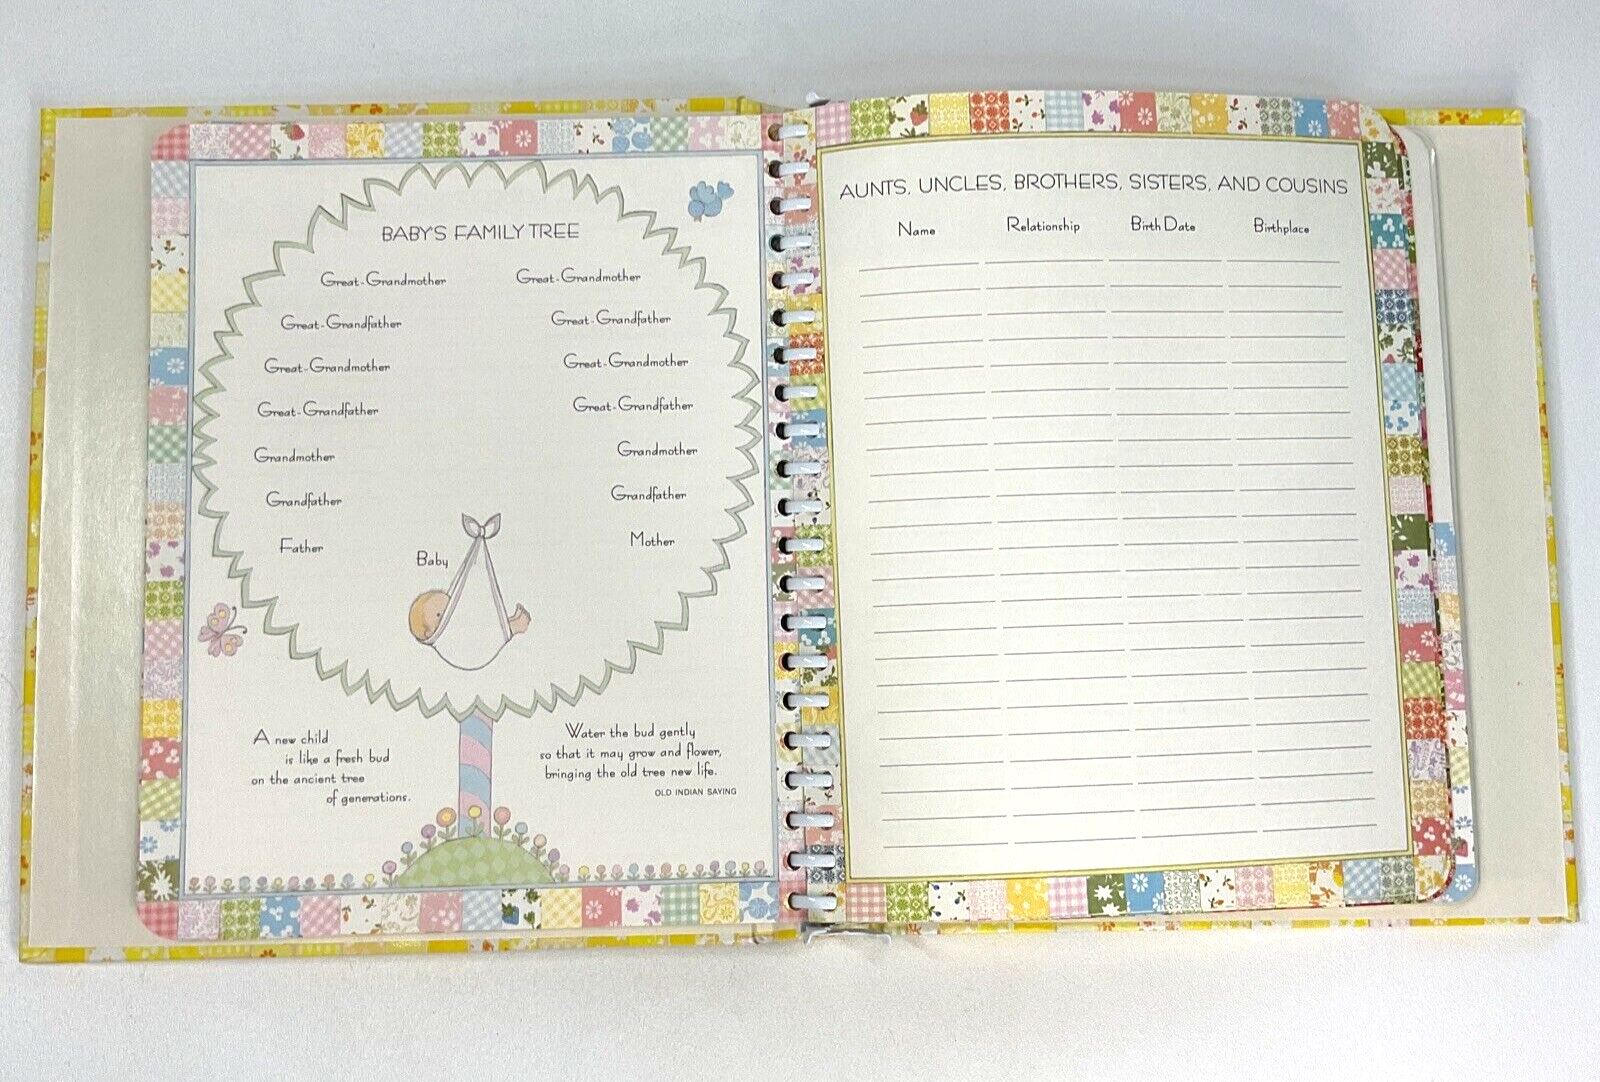 BABY'S FAMILY TREE
Great-Grandmother Great-Grandmother
Great-Grandfather Great-Grandfather
Great-Grandmother Great-Grandmother
Great-Grandfather Great-Grandfather
Grandmother Grandmother
Grandfather Grandfather
Father Mother
Baby
A new child
is like a fresh bud
on the ancient tree
of generations.
Water the bud gently
so that it may grow and flower,
bringing the old tree new life.
OLD INDIAN SAYING
AUNTS, UNCLES, BROTHERS, SISTERS, AND COUSINS
Name Relationship Birth Date Birthplace